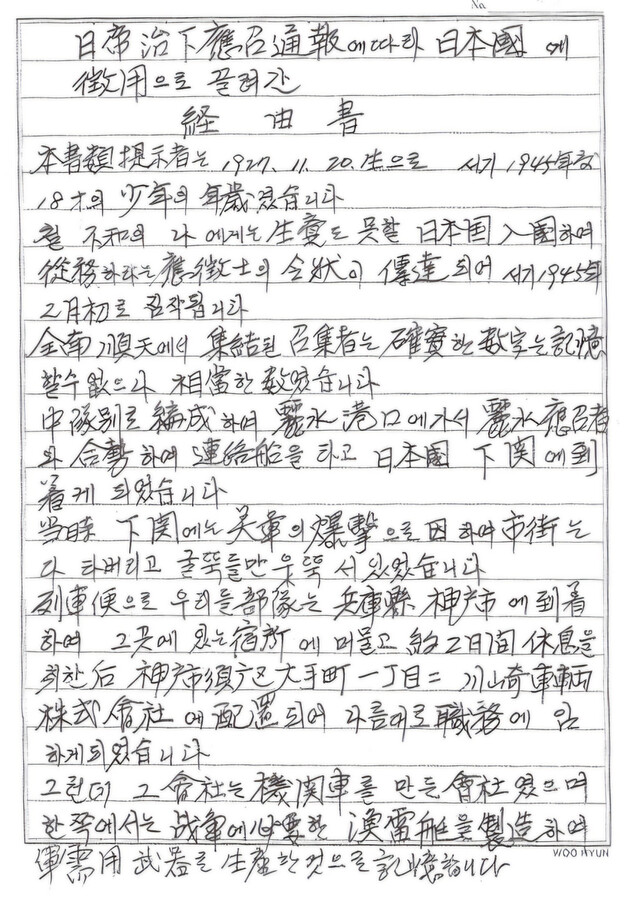 No.
日帝治下應召通報에따라 日本國에
徵用으로 끌려간
経由書
本書類提示者는 1927. 11. 20.生으로 서기 1945年 攷
18才의 少年의 年歲였습니다
不和의 나에게는 生覺도 못할 日本国入國하여
從務하라는 應徵士의 令狀이 傳達되어 서기 1945年
2月初로 짐작됩니다
全南 順天에서 集結된 召集者는 確實한 数字는 記憶
할수 없으나 相當한 数였습니다
中隊別로 編成하여 麗水港口에가서 麗水 應召者
와 合勢하여 連絡船을 타고 日本國 下関에 到
着케 되었습니다
当時 下関에는 美軍의 爆擊으로 因하여 市街는
다 타버리고 굴뚝들만 우뚝 서 있었습니다
列車便으로 우리들部隊는 兵庫縣 神戶市에 到着
하여 그곳에 있는 宿所에 머물고 約2日間 休息을
취한后 神戶市 須广区 大手町 一丁目二 川崎車輌
株式會社에 配置되어 나름대로 職務에 임
하게되었습니다
그런데 그會社는 機関車를 만든 會社였으며
한쪽에서는 战争에 必要한 漁雷艇을 製造하여
軍需用 武器를 生産한 것으로 記憶합니다
WOO HYUN